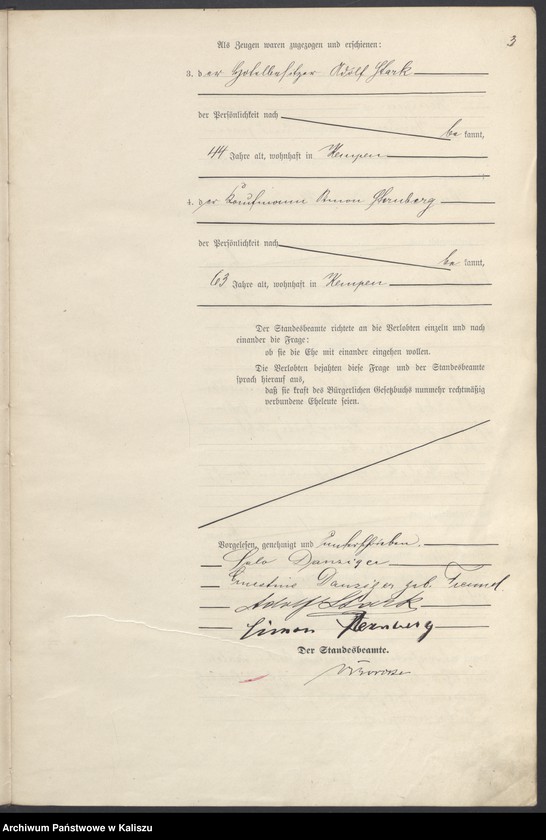 3
Als Zeugen waren zugezogen und erschienen:
3. der Hotelbesitzer Adolf Stark
der Persönlichkeit nach
be kannt,
44 Jahre alt, wohnhaft in Kempen
4. der Kaufmann Simon Sternberg
der Persönlichkeit nach
be kannt,
63 Jahre alt, wohnhaft in Kempen
Der Standesbeamte richtete an die Verlobten einzeln und nach
einander die Frage:
ob sie die Ehe mit einander eingehen wollen.
Die Verlobten bejahten diese Frage und der Standesbeamte
sprach hierauf aus,
daß sie kraft des Bürgerlichen Gesetzbuchs nunmehr rechtmäßig
verbundene Eheleute seien.
Vorgelesen, genehmigt und unterschrieben.
Danziger
Ernestine Danziger geb. Freund.
Adolf Stark
Simon Sternberg
Der Standesbeamte.
Archiwum Państwowe w Kaliszu